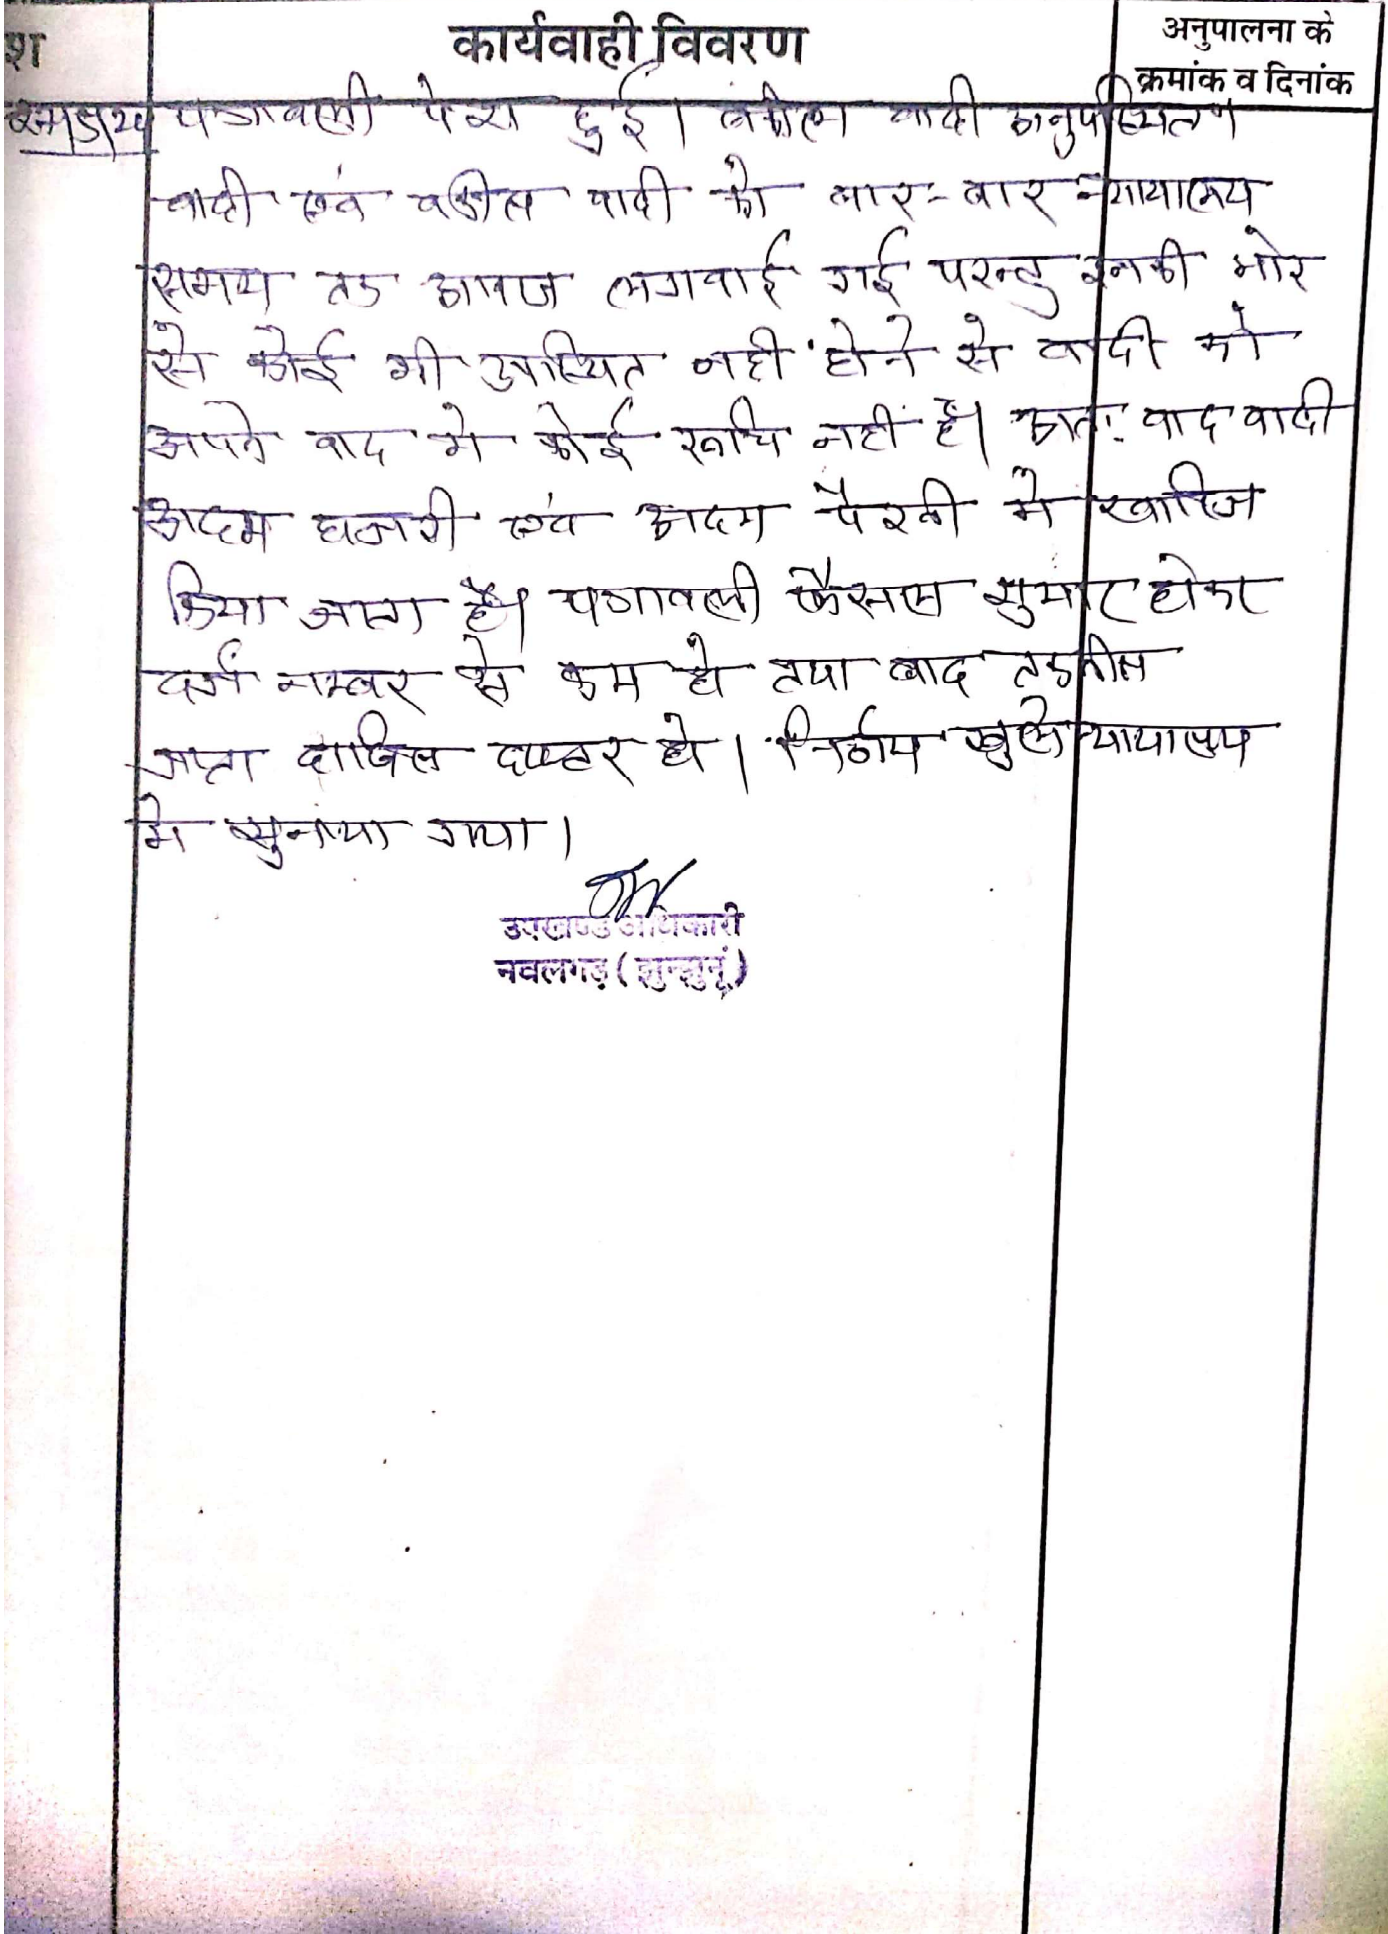 श
कार्यवाही विवरण
अनुपालना के
क्रमांक व दिनांक
पत्रावली पेश हुई। वकील वादी अनुपस्थित।
वादी एवं वकील वादी को बार-बार न्यायालय
समय तक आवाज लगवाई गई परन्तु इनकी ओर
से कोई भी उपस्थित नहीं होने से वादी को
अपने वाद मे कोई रूचि नहीं है। अतः वाद वादी
अदम हाजरी एवं अदम पैरवी मे खारिज
किया जाता है। पत्रावली फैसल सुमार होकर
दर्ज नम्बर से कम हो तथा बाद तकमील
जाप्ता दाखिल दफ्तर हो। निर्णय खुले न्यायालय
मे सुनाया गया।
उपखण्ड अधिकारी
नवलगढ़ (झुन्झुनूं)